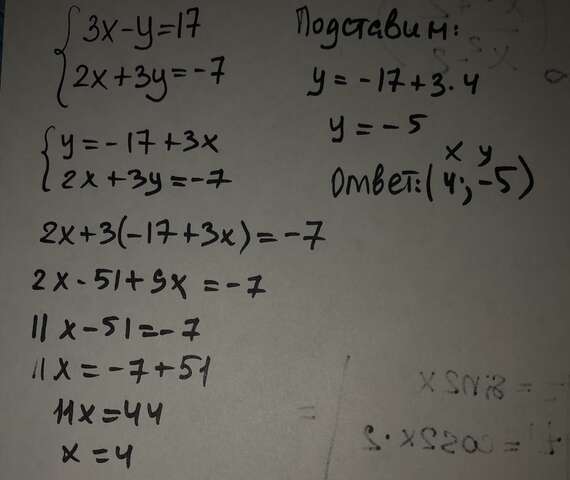 3x-y=17
2x+3y=-7
y=-17+3x
2x+3y=-7
2x+3(-17+3x)=-7
2x-51+9x=-7
11x-51=-7
11x=-7+51
11x=44
x=4
Подставим:
y=-17+3·4
y=-5
x y
Ответ:(4;-5)